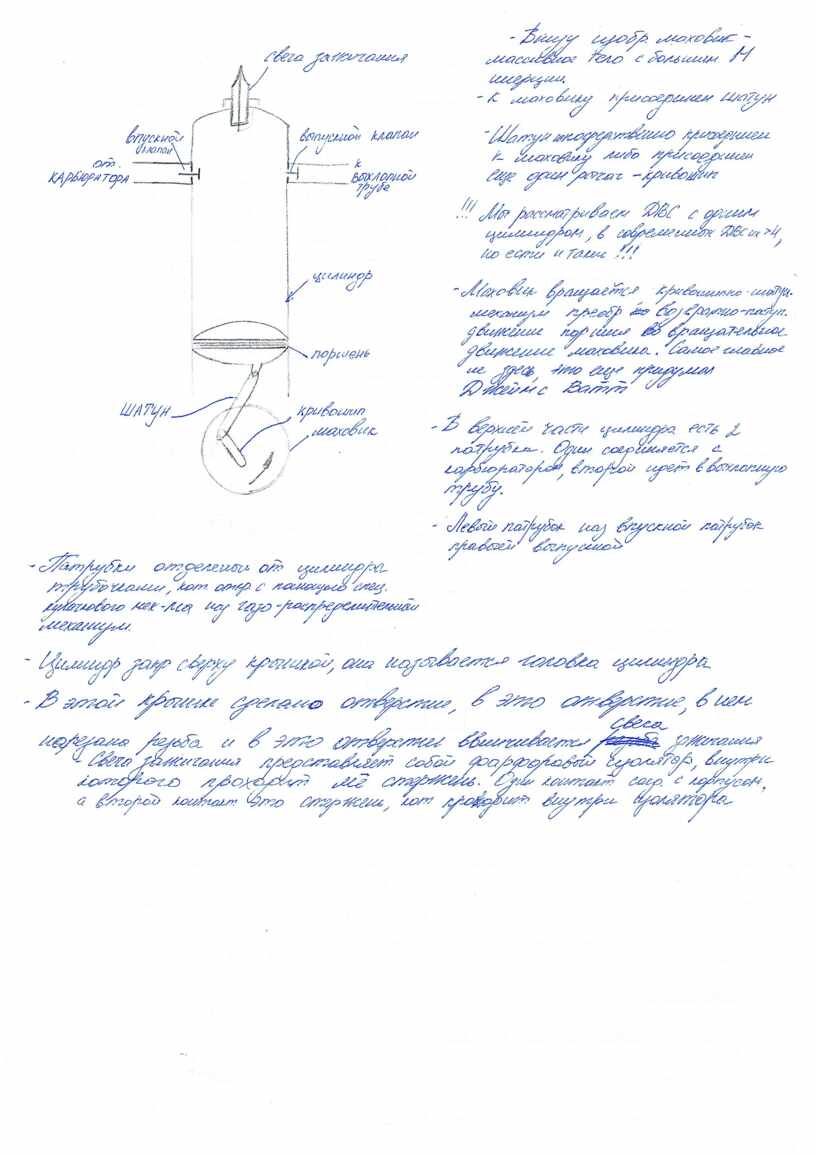 свега зажигания
впускной
клапан
выпускной клапан
от.
карбюратора
к
выхлопной
трубе
цилиндр
поршень
шатун
кривошип
маховик
- Внизу изобр. маховик -
массивное тело с большим М
инерции
- К маховику присоединен шатун
- Шатун непосредственно присоединен
к маховику либо присоединен
еще один рычаг - кривошип
!!! Мы рассматриваем ДВС с одним
цилиндром, в современных ДВС их 4,
но есть и такие !!!
- Маховик вращается кривошипно-шатун.
механизм преобр возвратно-поступ.
движение поршня во вращательное
движение маховика. Самое главное
не здесь, это еще придумал
Джеймс Ватт
- В верхней части цилиндра есть 2
патрубка. Один соединяется с
карбюратором, второй идет в выхлопную
трубу.
- Левый патрубок наз впускной патрубок
правый выпускной
- Патрубки отделены от цилиндра
трубочками, кот откр. с помощью спец.
кулачкового мех-ма наз газо-распределительный
механизм.
- Цилиндр закр сверху крышкой, она называется головка цилиндра
- В этой крышке сделано отверстие, в это отверстие, в нем
нарезана резьба и в это отверстие ввинчивается свега зажигания
- Свега зажигания представляет собой фарфоровый изолятор, внутри
которого проходит Ме стержень. Один контакт соед. с корпусом,
а второй контакт это стержень, кот проходит внутри изолятора